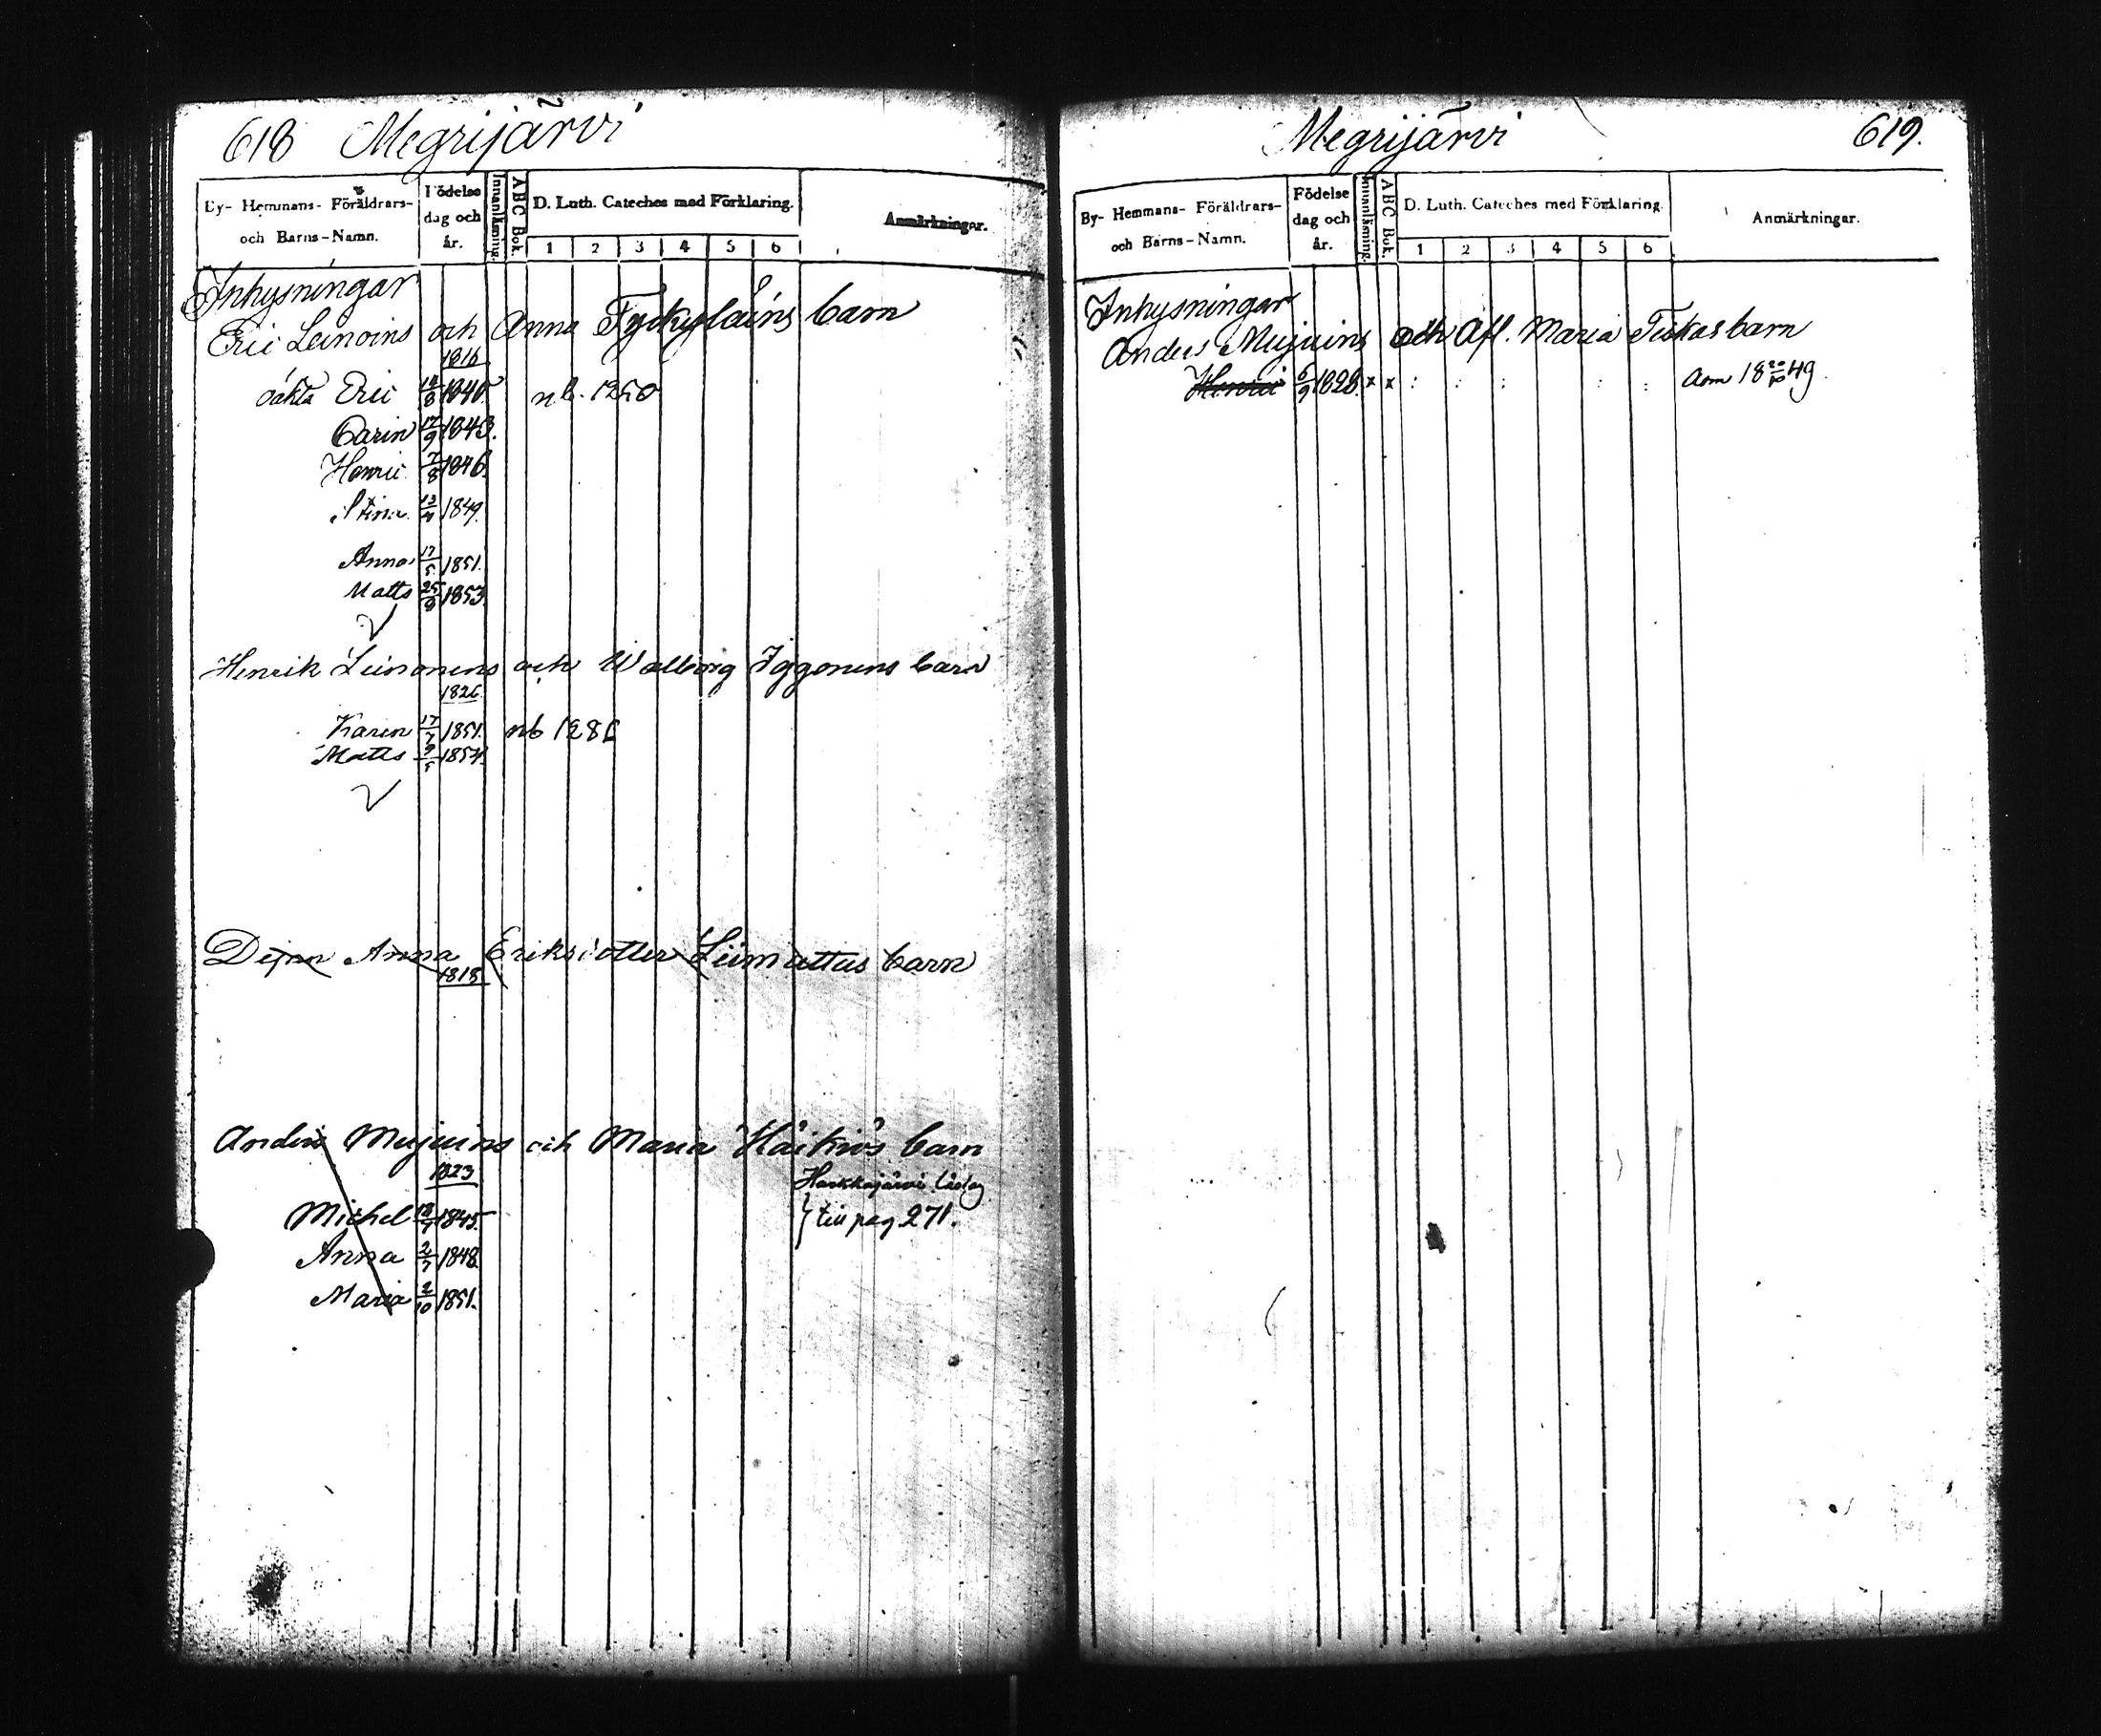 618 Megrijärvi
By- Hemmans- Föräldrars- och Barns-Namn.
Födelse dag och år.
Innanläsning.
ABC Bok.
D. Luth. Cateches med Förklaring.
1 2 3 4 5 6
Anmärkningar.
Inhysningar
Eric Leinoins och Anna Tyckyläins barn
1816
Eric 1840. nb. 1250
Carin 17/9 1843.
Henric 7/8 1846.
Stina 1849.
Anna 17/5 1851.
Matts 25/9 1853.
Henrik Leinonens och Walborg Iggonens barn
1826
Karin 17/7 1851. nb 128
Matts 9/5 1854.
Dejan Anna Eriksdotter Leimattas barn
1818
Anders Mujuins och Maria Häikiös barn
1823
Harkkajärvi
Michel 1845. till pag 271.
Anna 2/7 1848.
Maria 2/10 1851.
Megrijärvi 619.
By- Hemmans- Föräldrars- och Barns-Namn.
Födelse dag och år.
Innanläsning.
ABC Bok.
D. Luth. Cateches med Förklaring.
1 2 3 4 5 6
Anmärkningar.
Inhysningar
Anders Mujuins och Afl. Maria Tiikas barn
Henric 6/9 1828. x x : : : : : adm 18 20/10 49.